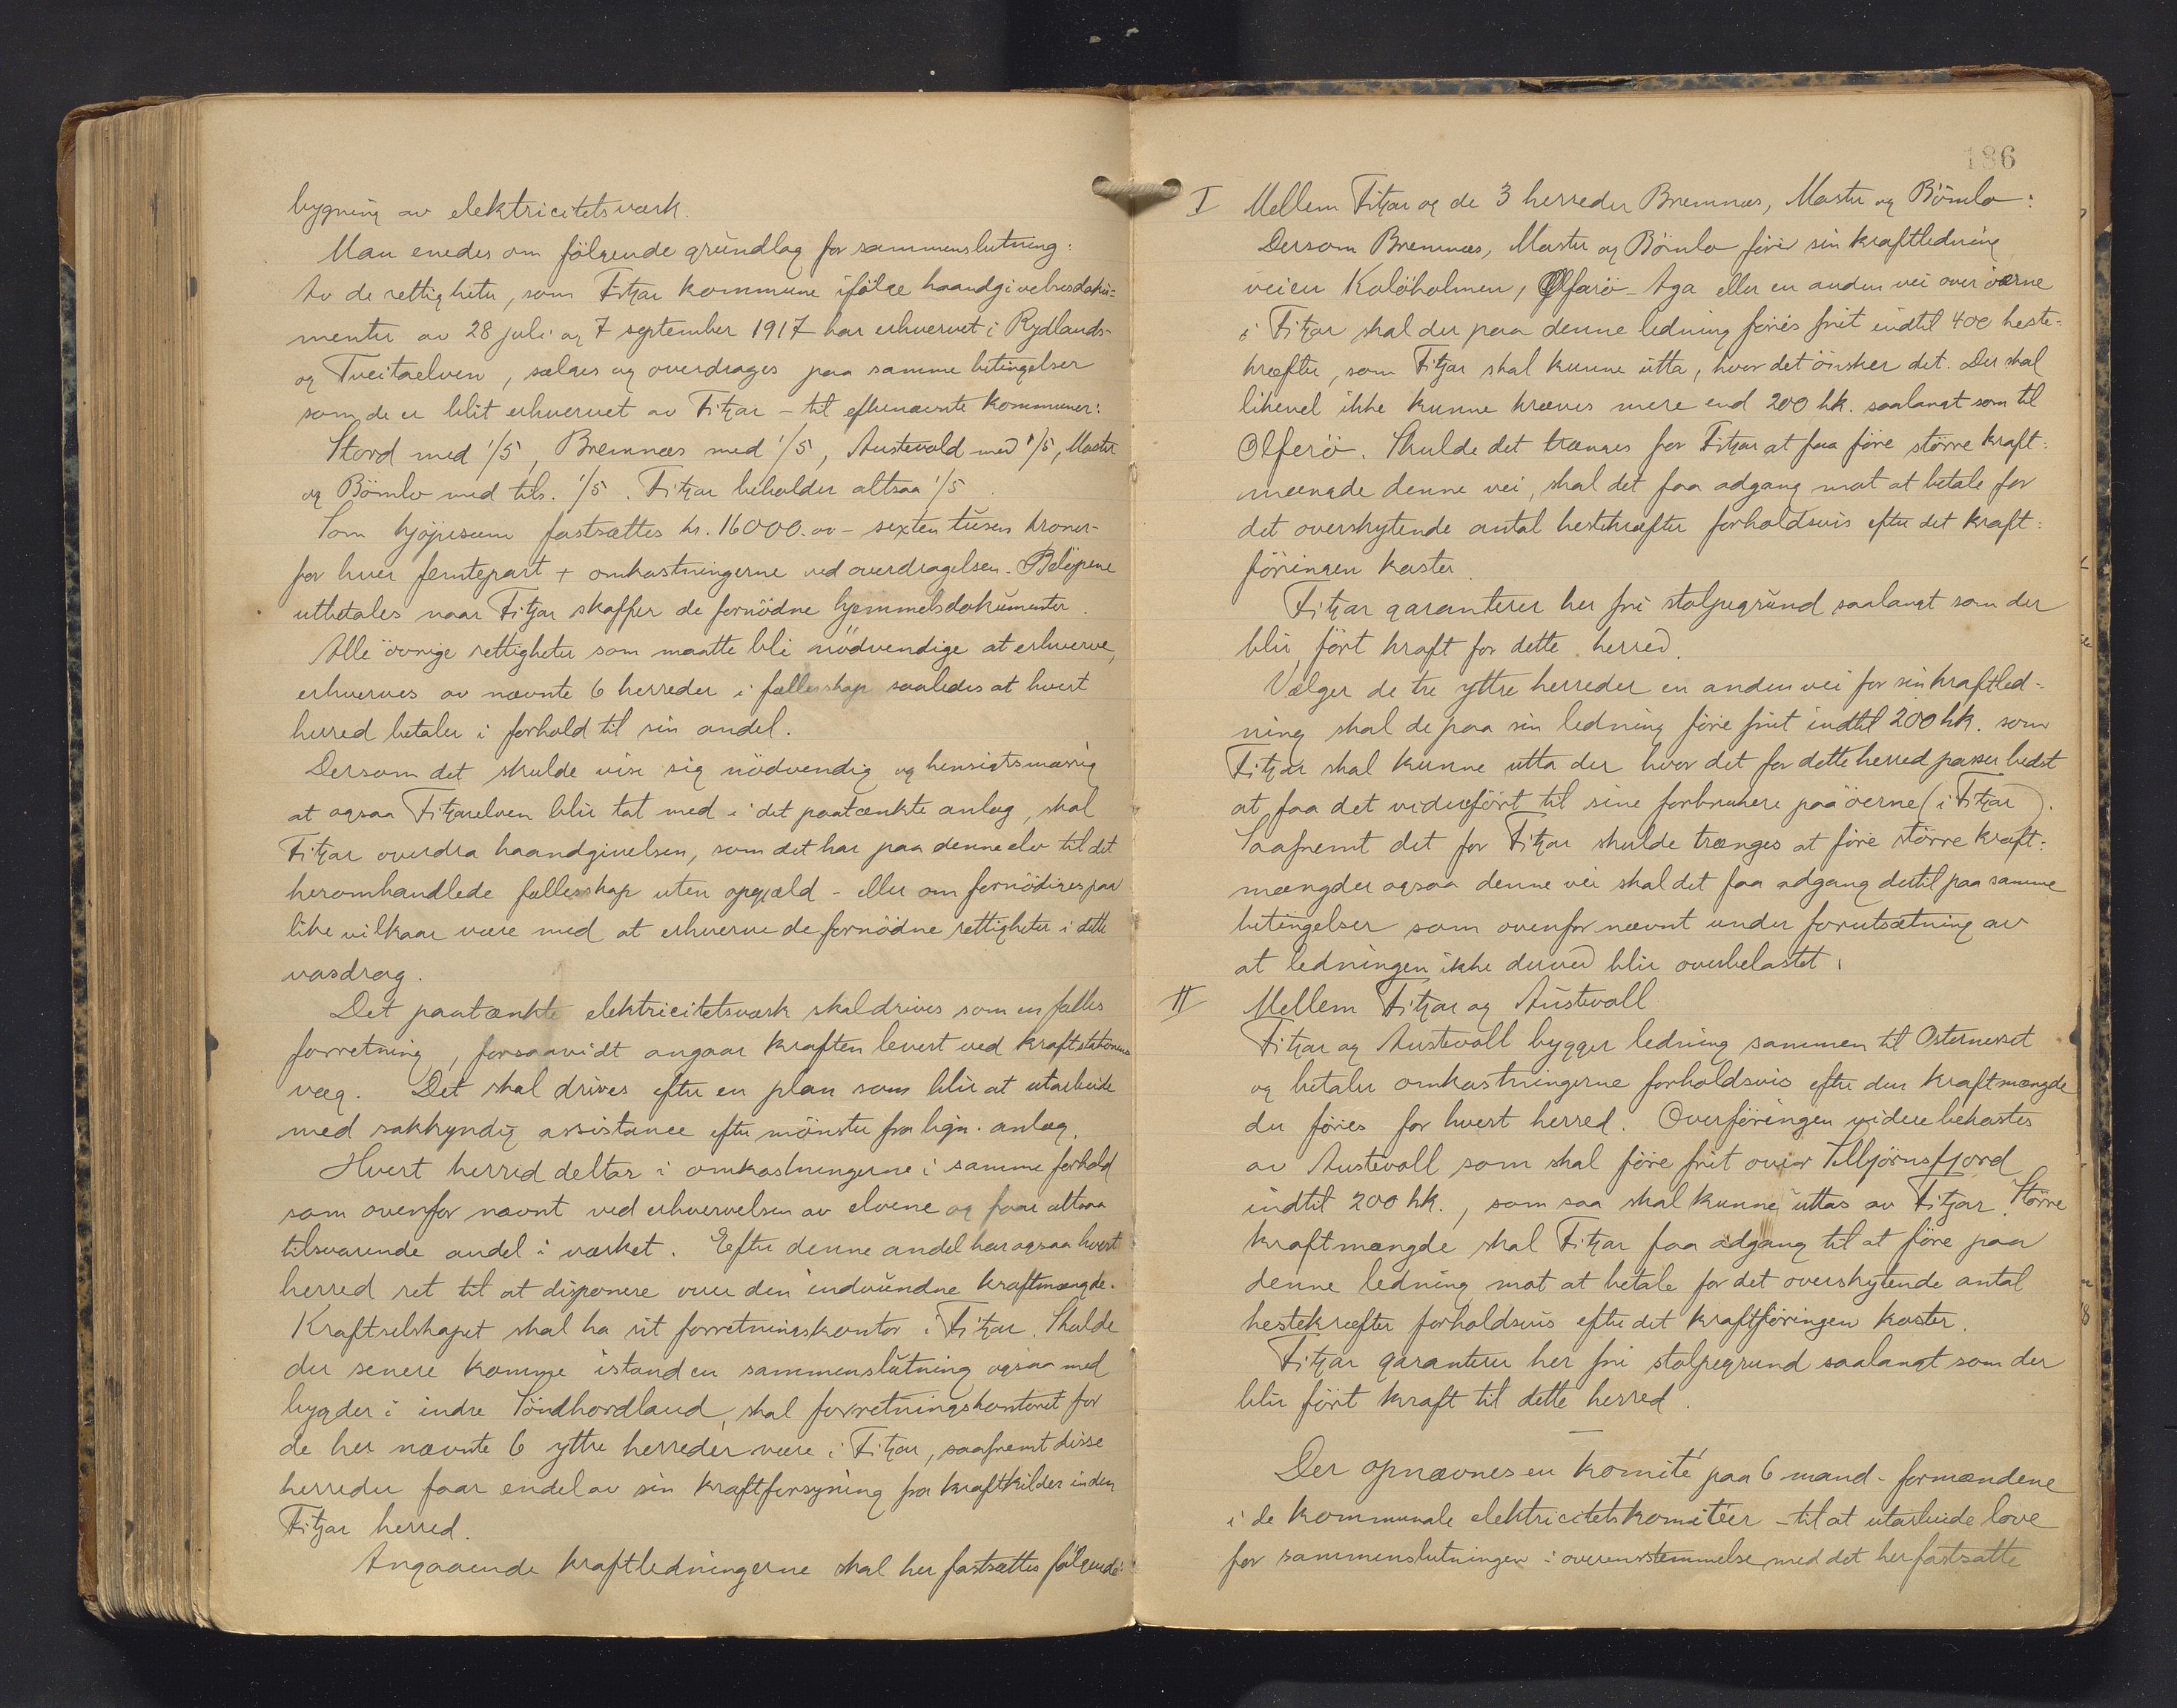 bygning av elektricitetsværk.
Man enedes om følgende grundlag for sammenslutning:
Av de rettigheter, som Fitjar kommune ifølge haandgivelsesdoku-
menter av 28 juli og 7 september 1917 har erhvervet i Rydlands-
og Tveitaelven, sælges og overdrages paa samme betingelser
som de er blit erhvervet av Fitjar - til efternævnte kommuner:
Stord med 1/5, Bremnes med 1/5, Austevold med 1/5, Moster
og Bömlo med tils. 1/5. Fitjar beholder altsaa 1/5.
Som kjöpesum fastsættes kr. 16000.00 - sexten tusen kroner -
for hver femtepart + omkostningerne ved overdragelsen. Belöpene
utbetales naar Fitjar skaffer de fornödne hjemmelsdokumenter.
Alle övrige rettigheter som maatte bli nödvendige at erhverve,
erhverves av nævnte 6 herreder i fællesskap saaledes at hvert
herred betaler i forhold til sin andel.
Dersom det skulde vise sig nödvendig og hensigtsmæssig
at ogsaa Fitjarelven blir tat med i det paatænkte anlæg, skal
Fitjar overdra haandgivelsen, som det har paa denne elv til det
heromhandlede fællesskap uten opgjæld - eller om fornödiges paa
like vilkaar være med at erhverve de fornödne rettigheter i dette
vasdrag.
Det paatænkte elektricitetsværk skal drives som en fælles
forretning, forsaavidt angaar kraften levert ved kraftstationens
væg. Det skal drives efter en plan som blir at utarbeide
med sakkyndig assistance efter mönster fra lign. anlæg.
Hvert herred deltar i omkostningerne i samme forhold
som ovenfor nævnt ved erhvervelsen av elvene og faar altsaa
tilsvarende andel i værket. Efter denne andel har ogsaa hvert
herred ret til at disponere over den indvundne kraftmængde.
Kraftselskapet skal ha sit forretningskontor i Fitjar. Skulde
der senere komme istand en sammenslutning ogsaa med
bygder i indre Söndhordland, skal forretningskontoret for
de her nævnte 6 yttre herreder være i Fitjar, saafremt disse
herreder faar endel av sin kraftforsyning fra kraftkilder inden
Fitjar herred.
Angaaende kraftledningerne skal her fastsættes følgende:
186
I Mellem Fitjar og de 3 herreder Bremnes, Moster og Bömlo:
Dersom Bremnes, Moster og Bömlo förer sin kraftledning
veien Kalöholmen, Olferö - Aga eller en anden vei over öerne
i Fitjar skal der paa denne ledning föres frit indtil 400 heste-
kræfter, som Fitjar skal kunne utta, hvor det önsker det. Der skal
likevel ikke kunne kræves mere end 200 hk. saalangt som til
Olferö. Skulde det trænges for Fitjar at faa före större kraft-
mængde denne vei, skal det faa adgang mot at betale for
det overskytende antal hestekræfter forholdsvis efter det kraft-
föringen koster.
Fitjar garanterer her fri stolpegrund saalangt som der
blir fört kraft for dette herred.
Vælger de tre yttre herreder en anden vei for sin kraftled-
ning skal de paa sin ledning före frit indtil 200 hk. som
Fitjar skal kunne utta der hvor det for dette herred passer bedst
at faa det videreført til sine forbrukere paa öerne (i Fitjar).
Saafremt det for Fitjar skulde trænges at före större kraft-
mængder ogsaa denne vei skal det faa adgang dertil paa samme
betingelser som ovenfor nævnt under forutsætning av
at ledningen ikke derved blir overbelastet.
II Mellem Fitjar og Austevoll
Fitjar og Austevoll bygger ledning sammen til Osterneset
og betaler omkostningerne forholdsvis efter den kraftmængde
der föres for hvert herred. Overföringen videre bekostes
av Austevoll som skal före frit over Selbjörnsfjord
indtil 200 hk., som saa skal kunne uttas av Fitjar. Större
kraftmængde skal Fitjar faa adgang til at före paa
denne ledning mot at betale for det overskytende antal
hestekræfter forholdsvis efter det kraftföringen koster.
Fitjar garanterer her fri stolpegrund saalangt som der
blir fört kraft til dette herred.
Der opnævnes en komité paa 6 mand - formændene
i de kommunale elektricitetskomitéer - til at utarbeide love
for sammenslutningen i overensstemmelse med det her fastsatte